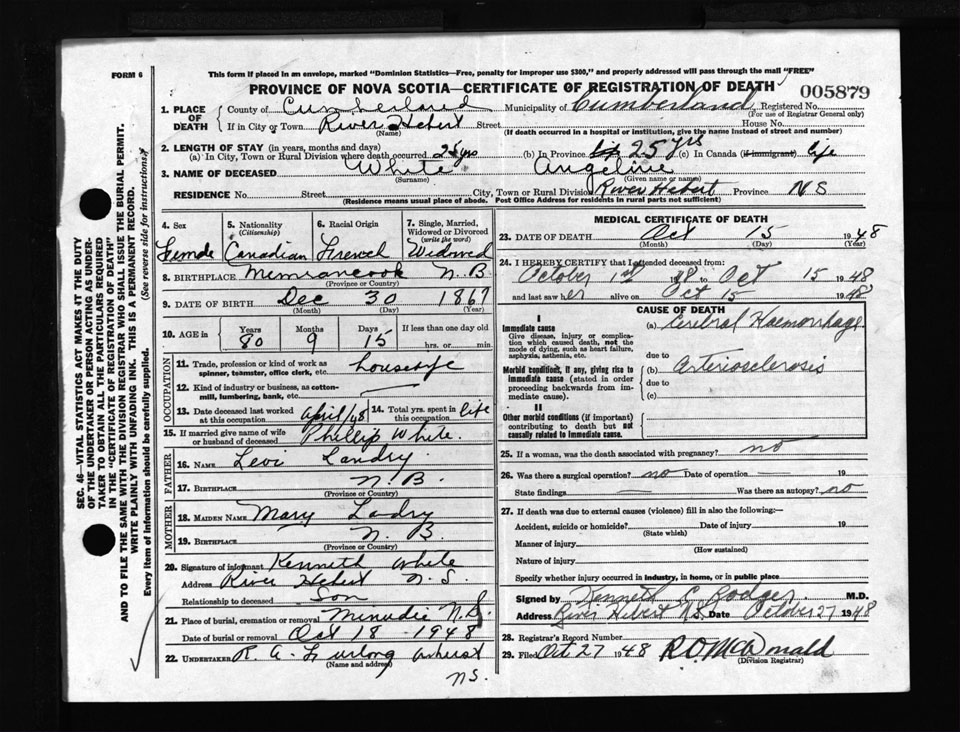 FORM 6
This form if placed in an envelope, marked "Dominion Statistics—Free, penalty for improper use $300," and properly addressed will pass through the mail "FREE"
PROVINCE OF NOVA SCOTIA—CERTIFICATE OF REGISTRATION OF DEATH
005879
1. PLACE OF DEATH { County of Cumberland Municipality of Cumberland Registered No.
(For use of Registrar General only)
If in City or Town River Hebert Street House No.
(Name) (If death occurred in a hospital or institution, give the name instead of street and number)
2. LENGTH OF STAY (in years, months and days)
(a) In City, Town or Rural Division where death occurred 25 yrs (b) In Province 25 yrs (c) In Canada (if immigrant) life
3. NAME OF DECEASED White Angeline
(Surname) (Given name or names)
RESIDENCE No. Street City, Town or Rural Division River Hebert Province N S
(Residence means usual place of abode. Post Office Address for residents in rural parts not sufficient)
4. Sex 5. Nationality (Citizenship) 6. Racial Origin 7. Single, Married, Widowed or Divorced (write the word)
Female Canadian French Widowed
8. BIRTHPLACE Memramcook N. B.
(Province or Country)
9. DATE OF BIRTH Dec 30 1867
(Month) (Day) (Year)
10. AGE in Years Months Days If less than one day old
80 9 15 hrs. or min.
OCCUPATION
11. Trade, profession or kind of work as spinner, teamster, office clerk, etc. housewife
12. Kind of industry or business, as cotton-mill, lumbering, bank, etc.
13. Date deceased last worked at this occupation April/48 14. Total yrs. spent in this occupation life
15. If married give name of wife or husband of deceased Phillip White.
FATHER
16. NAME Levi Landry.
17. BIRTHPLACE N. B.
(Province or Country)
MOTHER
18. MAIDEN NAME Mary Landry
19. BIRTHPLACE N. B.
(Province or Country)
20. Signature of informant Kenneth White
Address River Hebert N. S.
Relationship to deceased Son
21. Place of burial, cremation or removal Minudie N.S.
Date of burial or removal Oct 18 - 1948
22. UNDERTAKER R. A. Furlong Amherst
(Name and address)
N S.
MEDICAL CERTIFICATE OF DEATH
23. DATE OF DEATH Oct 15 1948
(Month) (Day) (Year)
24. I HEREBY CERTIFY that I attended deceased from:
October 1st 48 to Oct 15 1948
and last saw her alive on Oct 15 1948
CAUSE OF DEATH
I
Immediate cause
Give disease, injury or complication which caused death, not the mode of dying, such as heart failure, asphyxia, asthenia, etc.
(a) Cerebral Haemorrhage.
due to
Morbid conditions, if any, giving rise to immediate cause (stated in order proceeding backwards from immediate cause).
(b) Arteriosclerosis
due to
(c)
II
Other morbid conditions (if important) contributing to death but not causally related to immediate cause.
25. If a woman, was the death associated with pregnancy? no
26. Was there a surgical operation? no Date of operation — 19
State findings — Was there an autopsy? no
27. If death was due to external causes (violence) fill in also the following:—
Accident, suicide or homicide? Date of injury 19
(State which)
Manner of injury
(How sustained)
Nature of injury
Specify whether injury occurred in industry, in home, or in public place
Signed by Kenneth C. Rodger M.D.
Address River Hebert N.S. Date October 27 1948
28. Registrar's Record Number
29. Filed Oct 27 1948 R.O. McDonald
(Division Registrar)
SEC. 46—VITAL STATISTICS ACT MAKES IT THE DUTY OF THE UNDERTAKER OR PERSON ACTING AS UNDERTAKER TO OBTAIN ALL THE PARTICULARS REQUIRED IN THE "CERTIFICATE OF REGISTRATION OF DEATH"
AND TO FILE THE SAME WITH THE DIVISION REGISTRAR WHO SHALL ISSUE THE BURIAL PERMIT.
WRITE PLAINLY WITH UNFADING INK. THIS IS A PERMANENT RECORD.
Every item of Information should be carefully supplied. (See reverse side for instructions.)